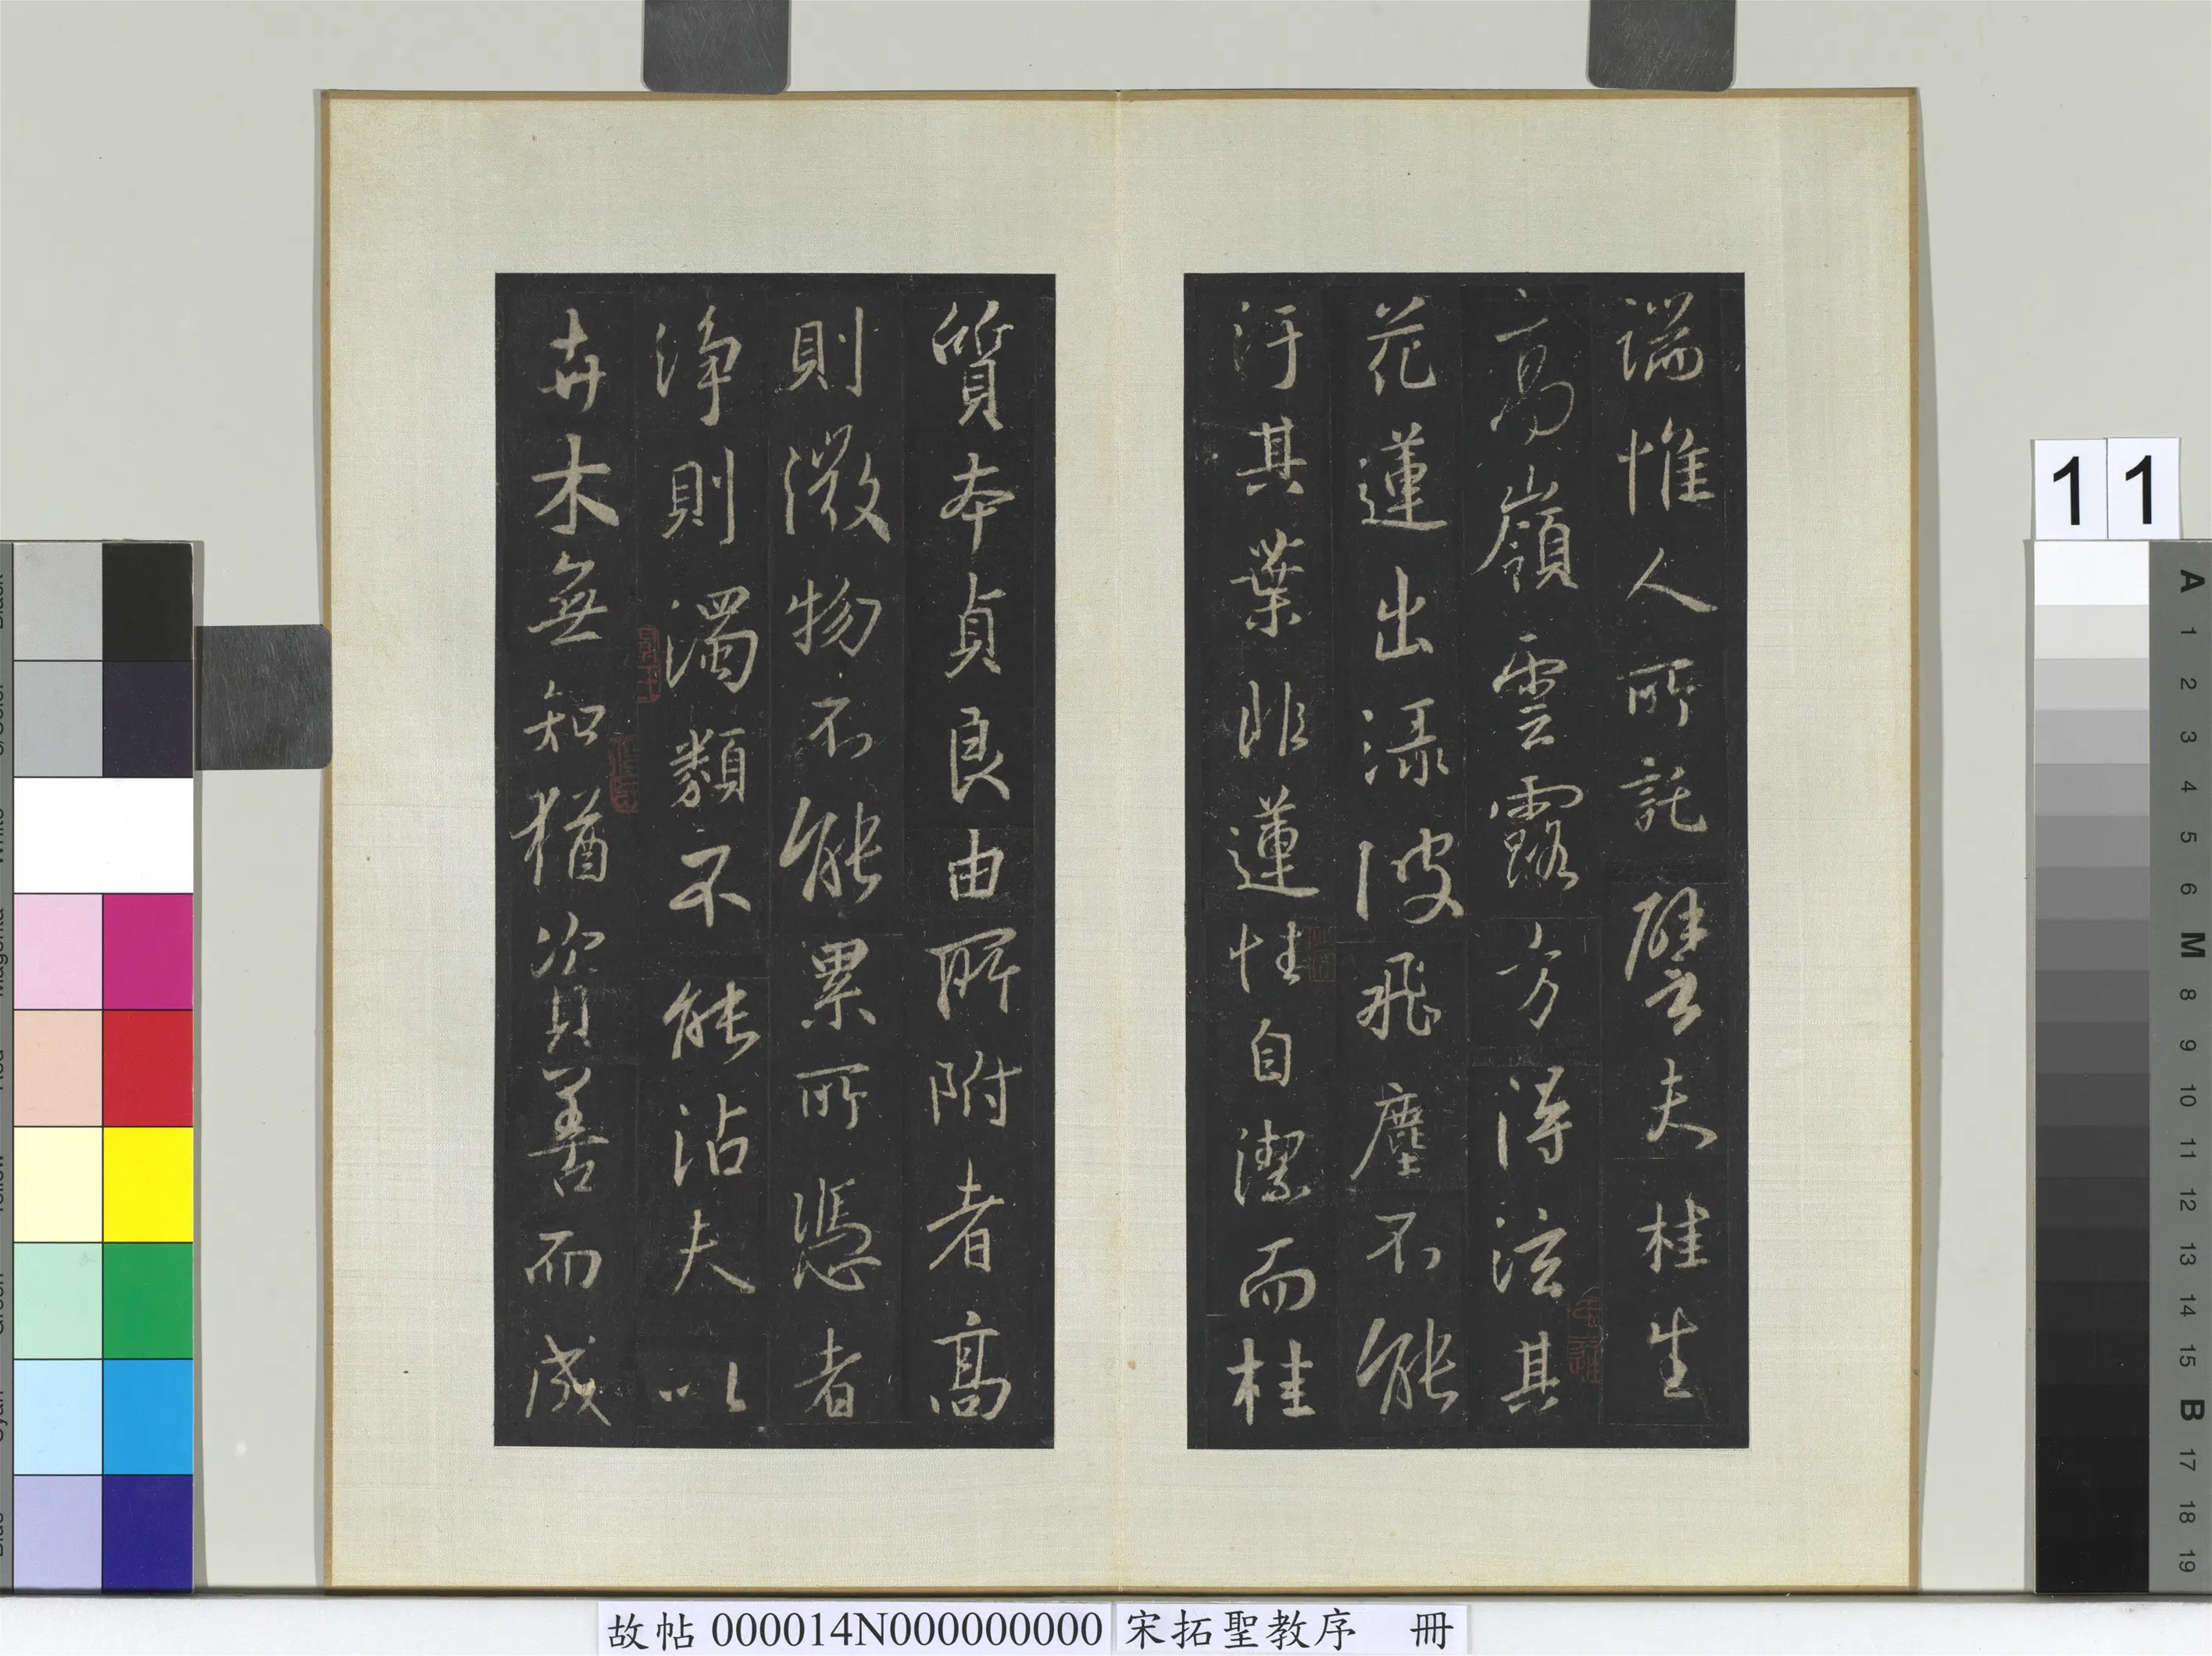 端惟人所託譬夫桂生
高嶺雲露方得泫其
花蓮出淥波飛塵不能
汙其葉非蓮性自潔而桂
質本貞良由所附者高
則微物不能累所憑者
淨則濁類不能沾夫以
卉木無知猶資善而成
11
A 1 2 3 4 5 6 M 8 9 10 11 12 13 14 15 B 17 18 19
故帖 000014N000000000 宋拓聖教序 冊